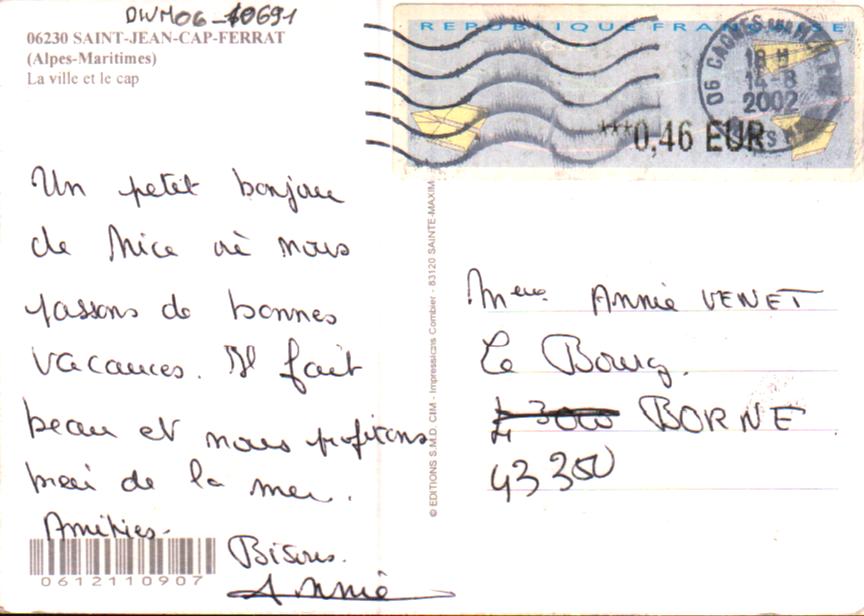 DWM06-10691
06230 SAINT-JEAN-CAP-FERRAT
(Alpes-Maritimes)
La ville et le cap
REPUBLIQUE FRANÇAISE
06 CAGNES SUR MER
18 H
14-8
2002
***0,46 EUR
Un petit bonjour
de Nice où nous
passons de bonnes
vacances. Il fait
beau et nous profitons
bien de la mer.
Amitiés.
Bisous.
Annie
0612110907
© EDITIONS S.M.D. CIM - Impressions Combier - 83120 SAINTE-MAXIM
Annie VENET
Le Bourg.
43000 BORNE
43350